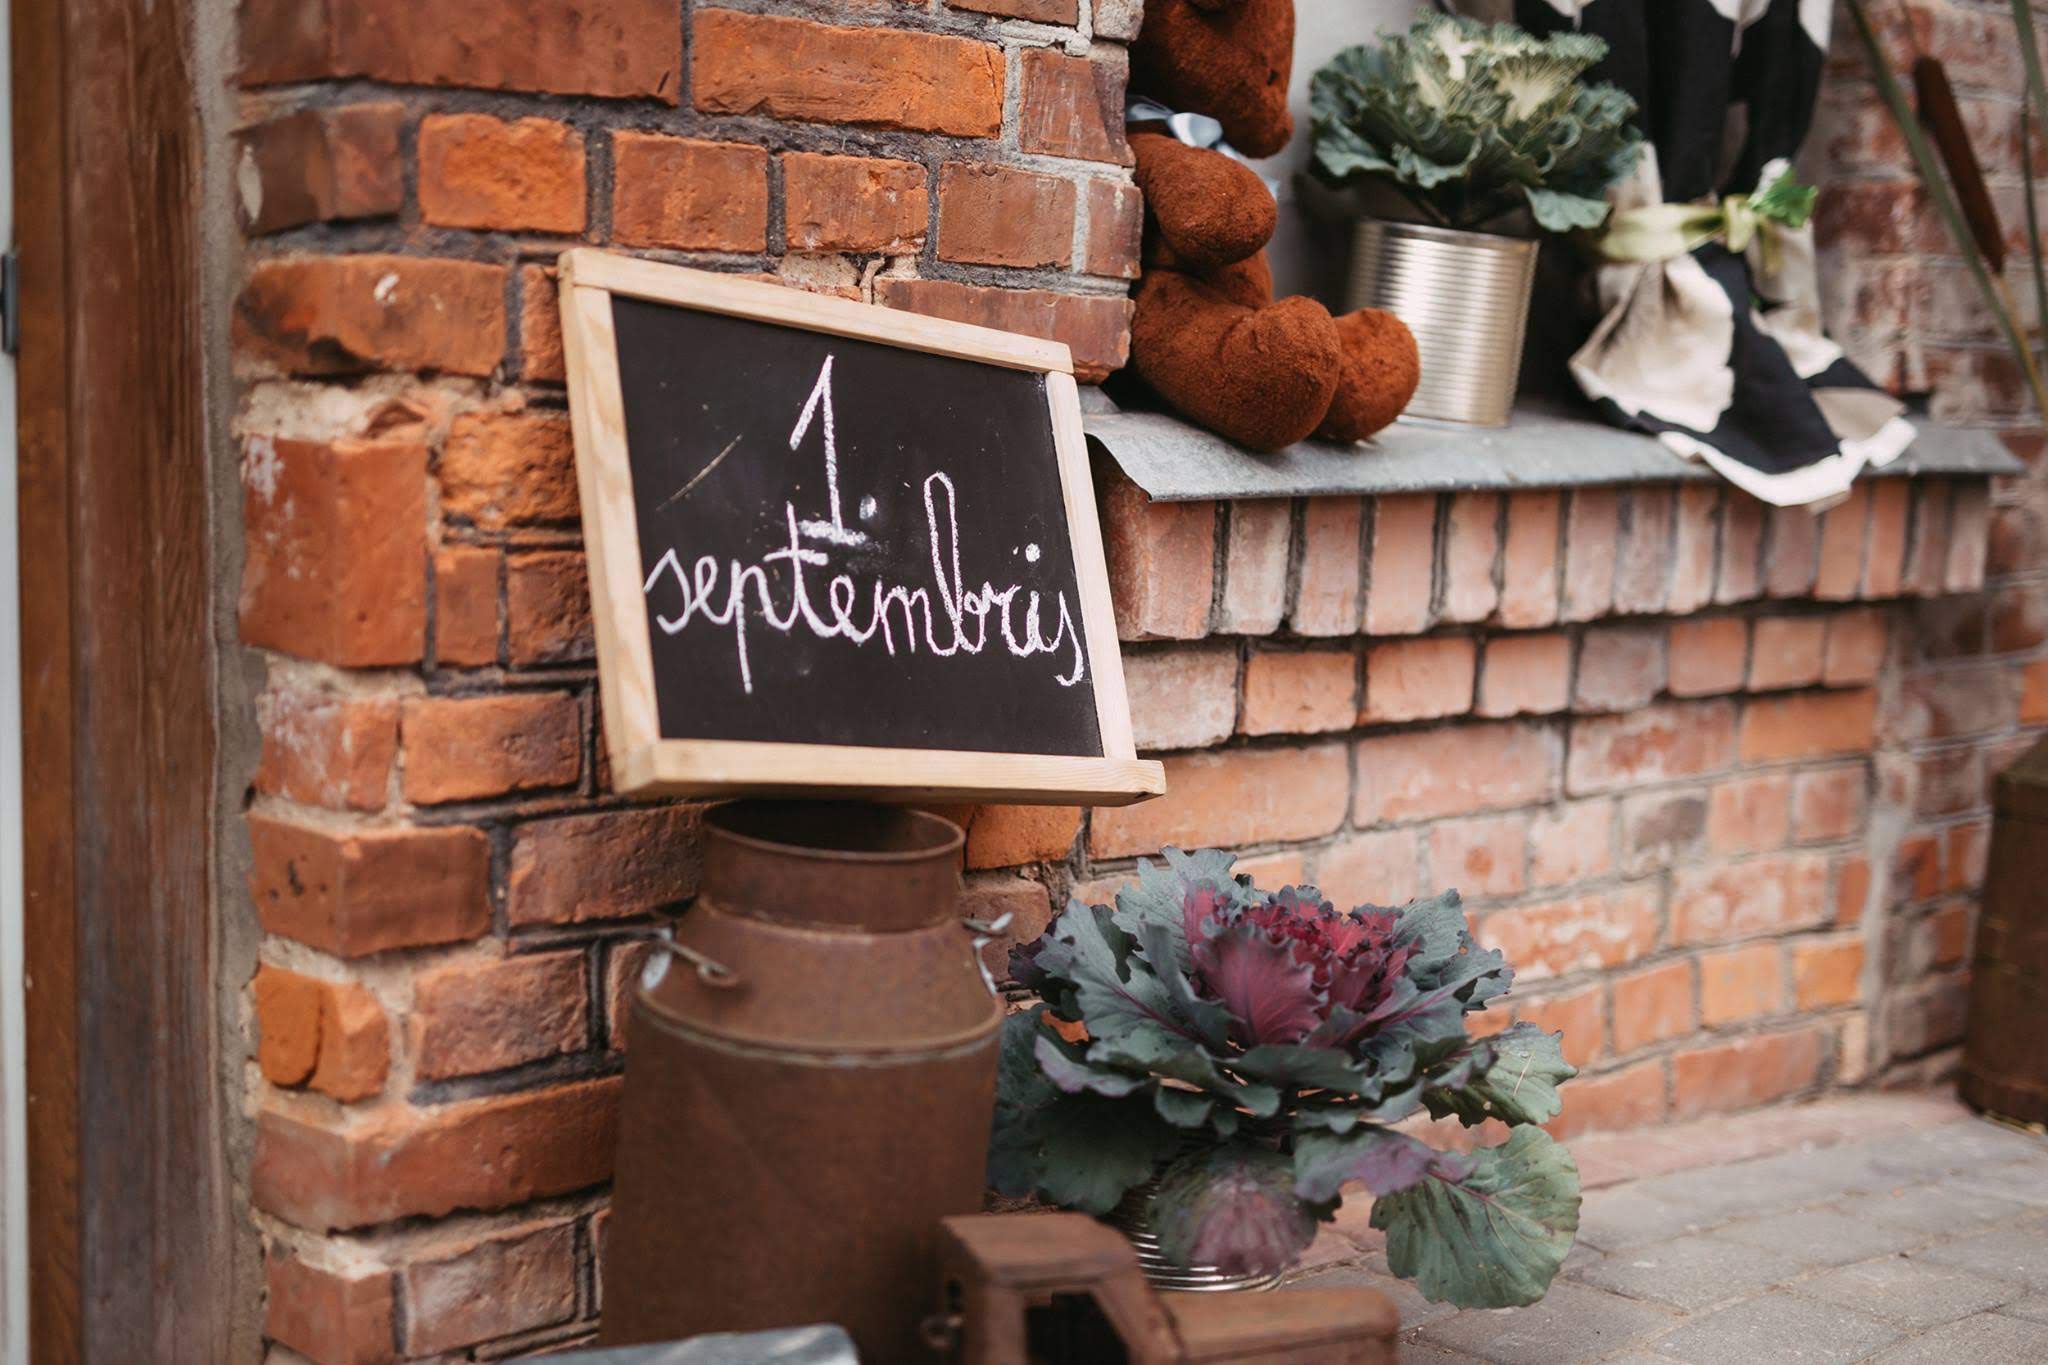 1.
septembris